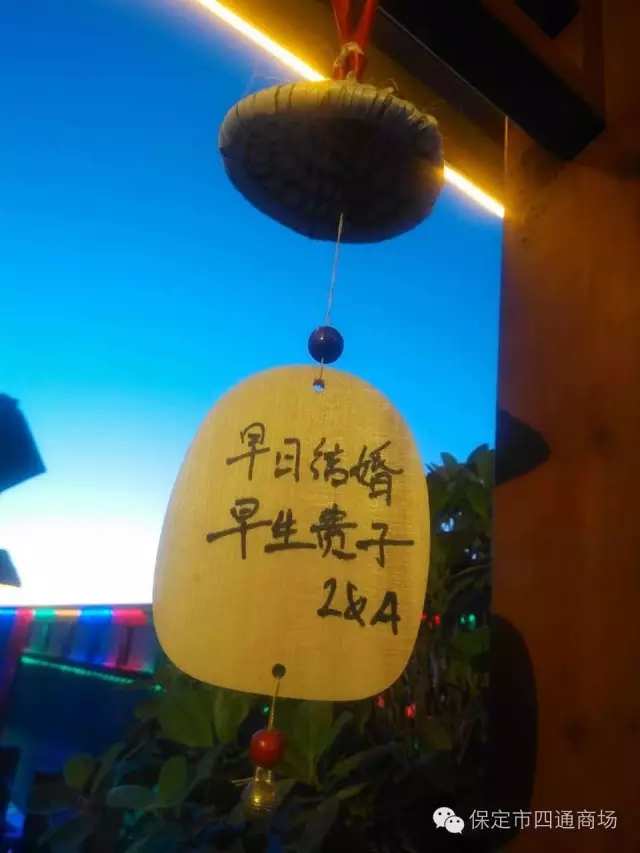 早日结婚
早生贵子
2&A
保定市四通商场